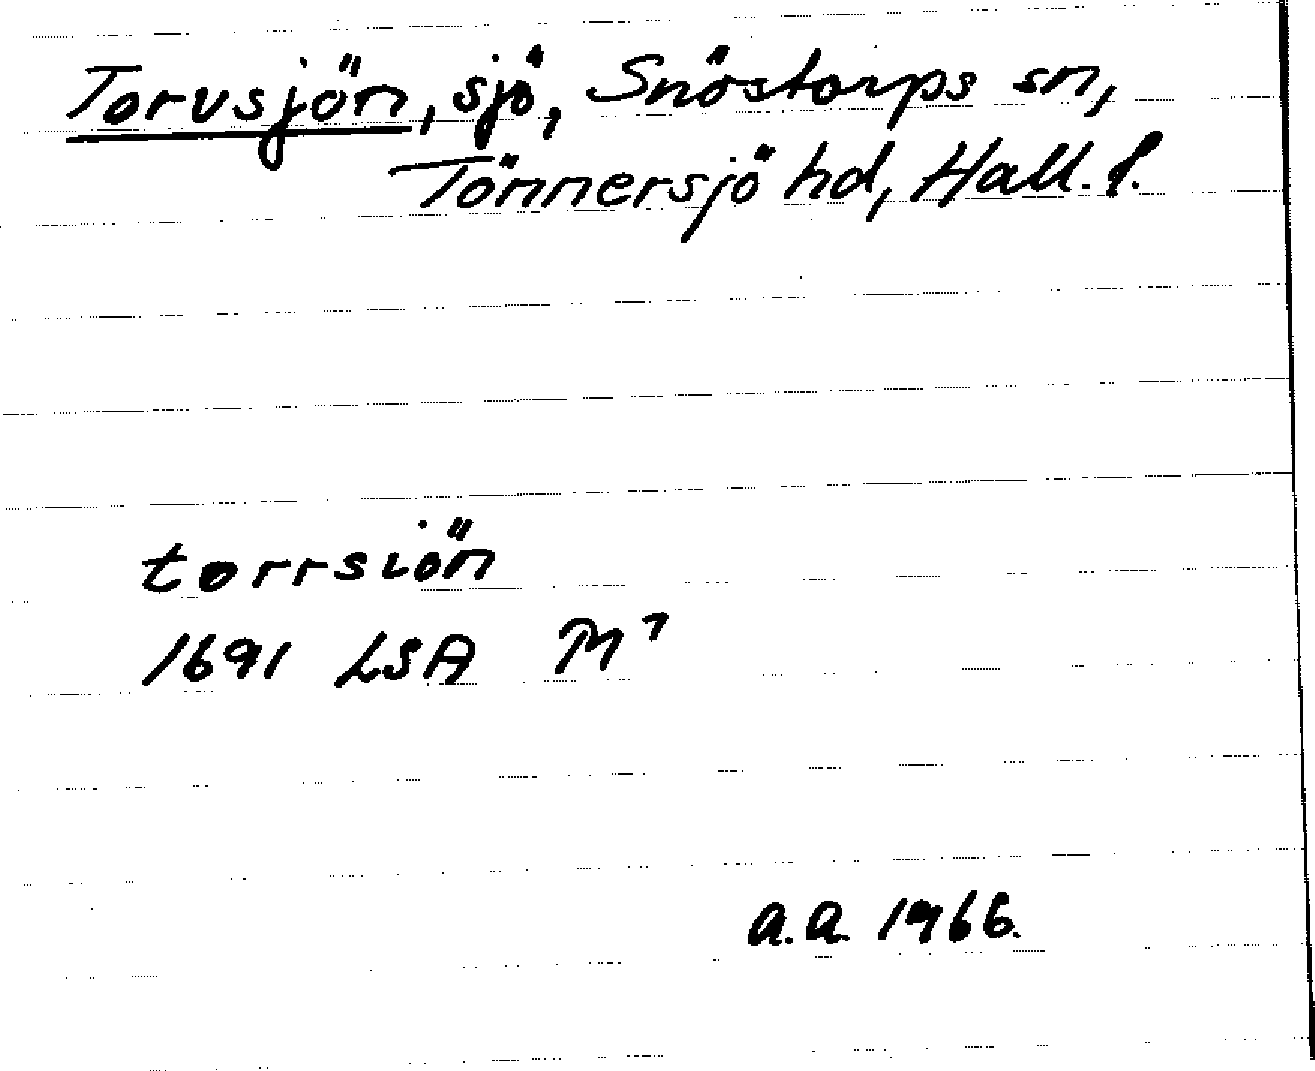 Torvsjön, sjö, Snöstorps sn,
Tönnersjö hd, Hall. l.
torrsiön
1691 LSA M⁷
a.a. 1966.